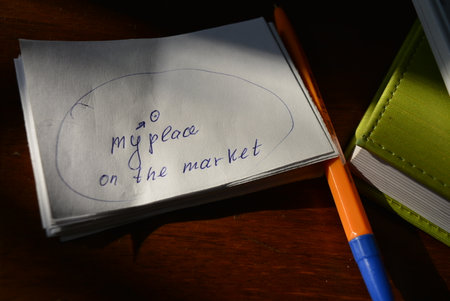 my place
on the market